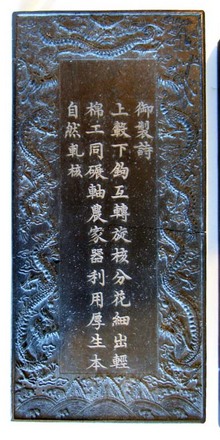 御製詩
上轂下鉤互轉旋核分花細出輕
棉工同碾軸農家器利用厚生本
自然軋核